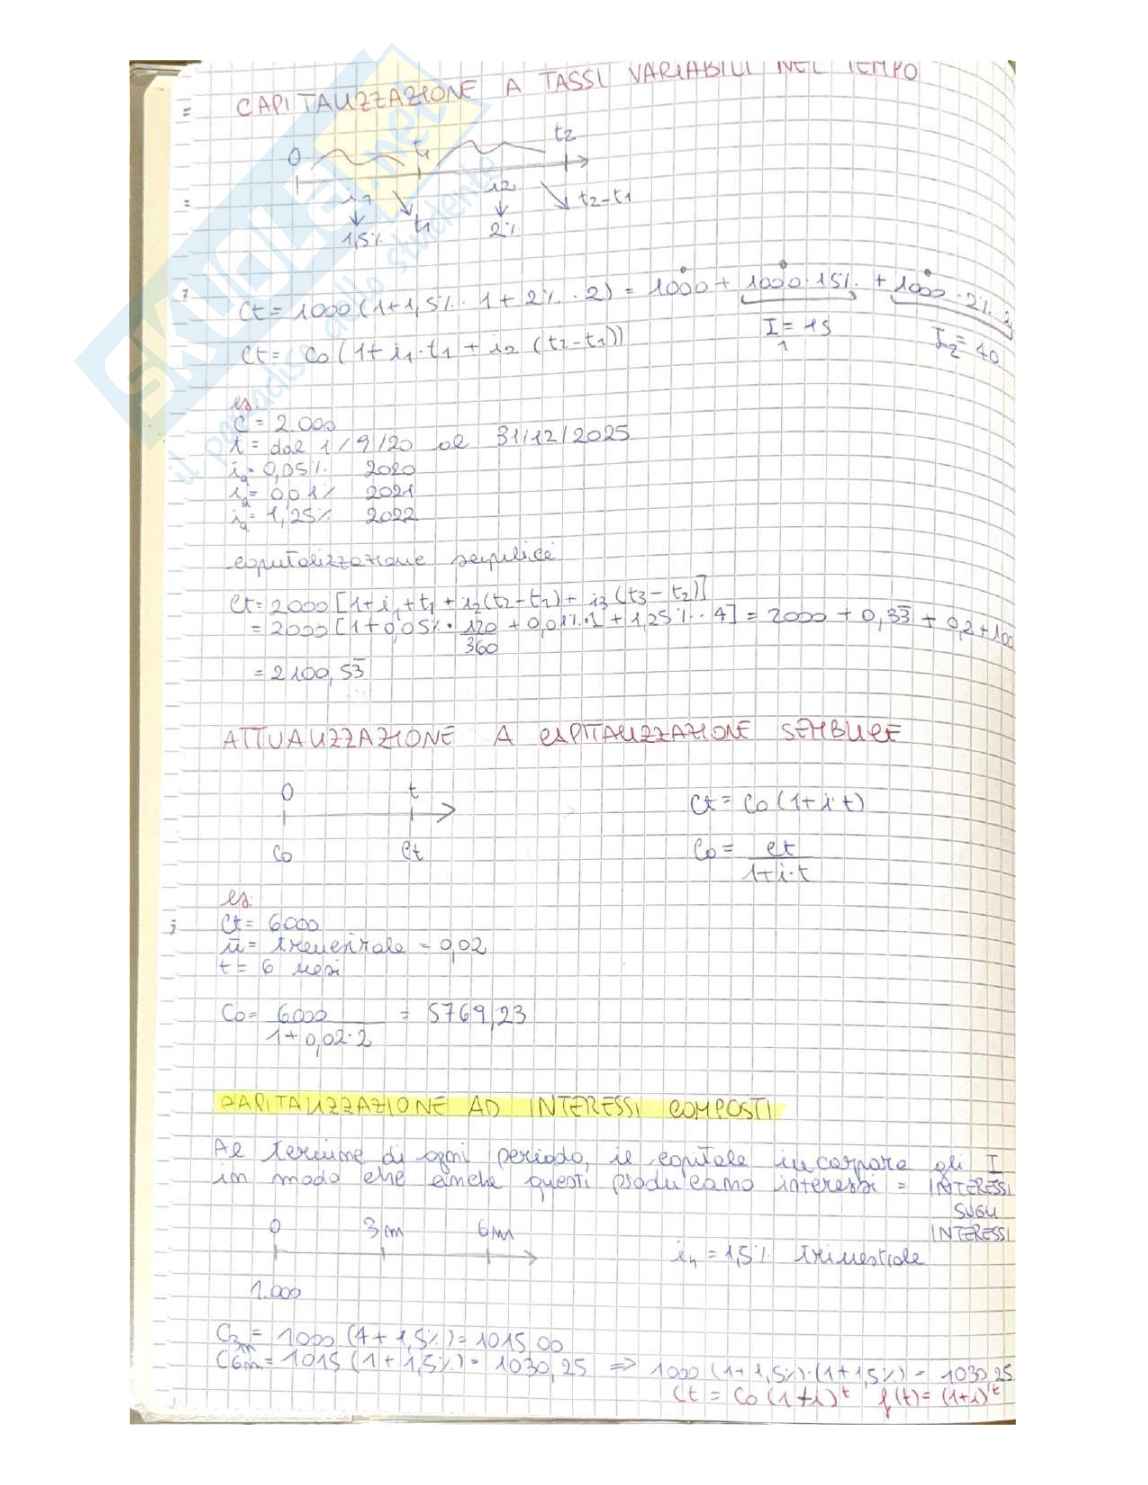 CAPITALIZZAZIONE A TASSI VARIABILI NEL TEMPO
0 t1 t2
i1 t1 i2 t2-t1
1,5% 2%
Ct = 1000 (1+1,5% · 1 + 2% · 2) = 1000 + 1000 · 1,5% · + 1000 · 2% · 2
I1 = 15 I2 = 40
Ct = C0 (1+ i1 · t1 + i2 (t2-t1))
es.
C = 2.000
t = dal 1/9/20 al 31/12/2025
ia = 0,05% 2020
ia = 0,01% 2021
ia = 1,25% 2022
capitalizzazione semplice
Ct = 2000 [1+i1+t1 + i2(t2-t1) + i3 (t3-t2)]
= 2000 [1+0,05% · 120/360 + 0,01% · 1 + 1,25% · 4] = 2000 + 0,33 + 0,2 + 100
= 2100,53
ATTUALIZZAZIONE A CAPITALIZZAZIONE SEMPLICE
0 t
C0 Ct
Ct = C0 (1+i·t)
C0 = Ct / 1+i·t
es
Ct = 6000
= trimestrale = 0,02
t = 6 mesi
C0 = 6000 / 1+0,02·2 = 5769,23
CAPITALIZZAZIONE AD INTERESSI COMPOSTI
Al termine di ogni periodo, il capitale incorpora gli I
in modo che anche questi producano interessi = INTERESSI
SUGLI
INTERESSI
0 3m 6m
i4 = 1,5% trimestrale
1.000
C3m = 1000 (1+1,5%) = 1015,00
C6m = 1015 (1+1,5%) = 1030,25 => 1000 (1+1,5%)·(1+1,5%) = 1030,25
Ct = C0 (1+i)^t f(t) = (1+i)^t
SKUOLA.net
il paradiso dello studente